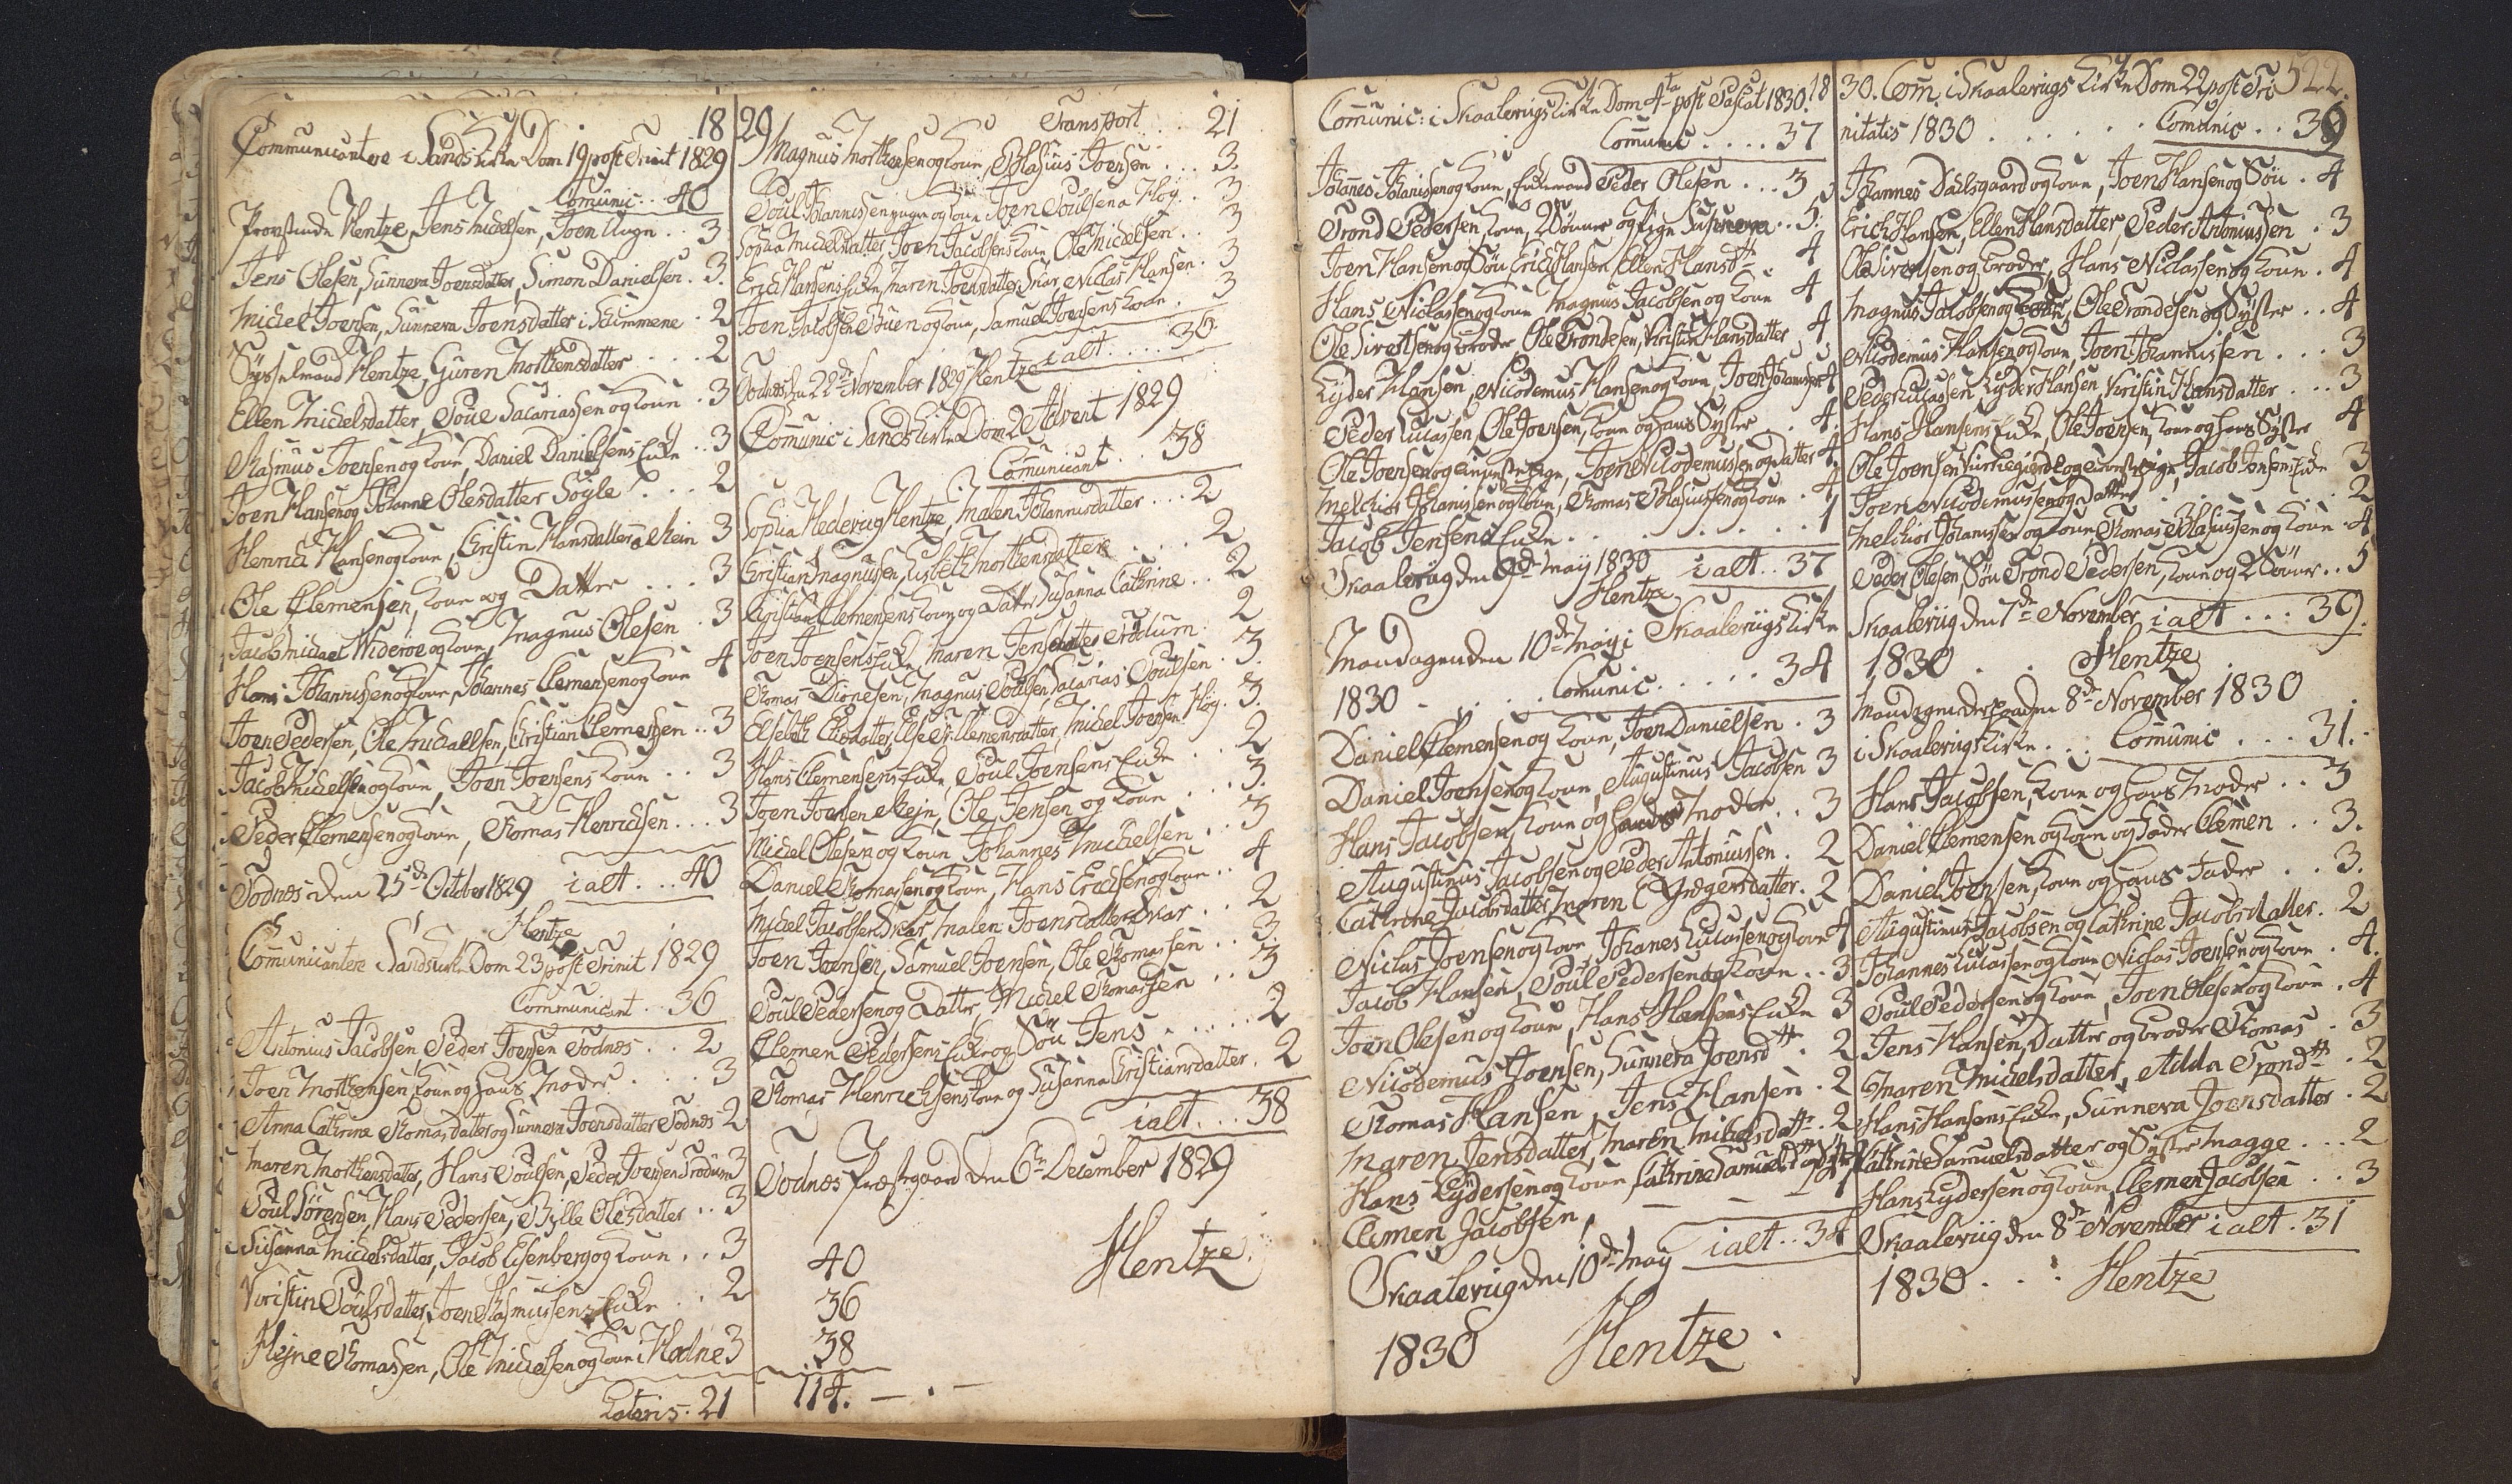 18
Communicantere i Sands Kirke Dom 19 post Trinit 1829
Comunic .. 40
Provstinde Hentze, Jens Michelsen, Joen .. 3
Jens Olesen, Sunneva Joensdatter, Simon Danielsen . 3.
Michel Joensen, Sunneva Joensdatter i Skimmene . 2
Sysselmand Hentze, Guren Mortensdatter . . . . 2
Ellen Michelsdatter, Poul Sacariassen og Kone . 3
Rasmus Joensen og Kone, Daniel Danielsens Enke . . 3
Joen Hansen og Johanne Olesdatter Søyle . . . 2
Henrich Hansen og Kone, Christin Hansdatter a Rein 3
Ole Clemensen, Kone og Datter . . . 3
Jacob Michael Widerøe og Kone, Magnus Olesen . 3
Hans Johannissen og Kone, Johannes Clemensen og Kone 4
Joen Pedersen, Ole Michaelsen, Christian Clemensen . . 3
Jacob Michelsen og Kone, Joen Joensens Kone . . 3
Peder Clemensen og Kone, Thomas Henrichsen . . . 3
Todnæs den 25de October 1829 ialt . . . 40
Hentze
Communicantere i Sands Kirke Dom 23 post Trinit 1829
Communicant . 36
Antonius Jacobsen, Peder Joensen Todnæs . . 2
Joen Mortensen, Kone og hans Moder . . . 3
Anna Cathrina Thomasdatter og Sunneva Joensdatter Todnæs 2
Maren Mortensdatter, Hans Poulsen, Peder Joensen Trødum 3
Poul Sørensen, Hans Pedersen, Bille Olesdatter . . 3
Susanna Michelsdatter, Jacob Eisenberg og Kone . . 3
Kristin Poulsdatter, Joen Rasmussens Enke . . 2
Hejne Thomassen, Ole Michelsen og Kone i Hodne 3
Lateris . 21
29
Transport . . . 21
Magnus Mortensen og Kone, Blasius Joensen . . . 3.
Poul Johannissen og Kone Joen Poulsen a Høg . . 3
Sophia Michelsdatter, Joen Jacobsens Kone, Ole Michelsen . . 3
Erich Hansens Enke, Maren Joensdatter, Niclas Hansen . 3
Joen Jacobsen og Kone, Samuel Joensens Kone . 3
ialt . . . . 36
Todnæs den 22de November 1829 Hentze
Comunic i Sands Kirke Dom 2 Advent 1829
Comunicant . . 38
Sophia Hedevig Hentze, Malen Johannisdatter . . . 2
Christian Magnussen, Lisbeth Mortensdatter . . . 2
Christian Clemensens Kone og Datter Susanna Cathrine . . 2
Joen Joensens Enke, Maren Jensdatter Trødum . 2
Thomas Dionesen, Magnus Poulsen, Sacarias Poulsen . 3.
Elsebeth, Else Clemensdatter, Michel Joensen Høg . 3.
Hans Clemensens Enke, Poul Joensens Enke . . 2
Joen Joensen a Rejn, Ole Jensen og Kone . . . 3.
Michel Olesen og Kone Johannes Michelsen . . 3
Daniel Thomasen og Kone, Hans Erichsen og Kone . . 4
Michel Jacobsen, Malen Joensdatter . . 2
Joen Joensen, Samuel Joensen, Ole Thomassen . . 3
Poul Pedersen og Datter, Michel Thomassen . . 3
Clemen Pedersens Enke og Søn Jens . . . . . 2
Thomas Henrichsens Kone og Susanna Christiansdatter . 2
ialt . . . 38
Todnæs Præstegaard den 6te December 1829
Hentze.
40
36
38
114. — . —
Comunic: i Skaalevigs Kirke Dom 4ta post Pascat 1830. 18
Comunic . . . . 37
Johannes Johanissen og Kone, Enkemand Peder Olesen . . . 3
Trond Pedersen, Kone, 2 Sønner og Pige Susanna . . 5.
Joen Hansen og Søn Erich Hansen Ellen Hansdtt . 4
Hans Niclassen og Kone Magnus Jacobsen og Kone 4
Ole Sivertsen og Broder, Ole Trondesen, Kristin Hansdatter 4
Lyder Hansen, Nicodemus Hansen og Kone, Joen Johannissen 4
Peder Lucassen, Ole Joensen, Kone og hans Syster . . 4
Ole Joensen og Pige, Joen Nicodemussen og Datter 4
Melchior Johanissen og Kone, Thomas Blasiussen og Kone . 4
Jacob Jensens Enke . . . . . . . . 1
Skaalevig den 9de May 1830 ialt . . 37
Hentze
Mandagen den 10de May i Skaalevigs Kirke
1830 - . . . Comunic . . . . . 34
Daniel Clemensen og Kone, Joen Danielsen . 3
Daniel Joensen og Kone, Augustinus Jacobsen 3
Hans Jacobsen, Kone og hans Moder . . 3
Augustinus Jacobsen og Peder Antoniussen . 2
Cathrine Jacobsdatter, Maren C Yngersdatter . 2
Niclas Joensen og Kone Johanes Lucassen og Kone 4
Jacob Hansen, Poul Pedersen og Kone . . 3
Joen Olesen og Kone, Hans Hansens Enke 3
Nicodemus Joensen, Sunneva Joensdtt . 2
Thomas Hansen, Jens Hansen . 2
Maren Jensdatter, Maren Michelsdatt . 2
Hans Lydersen og Kone, Cathrine Samuelsdtt og Syster 4
Clemen Jacobsen, — — 1
Skaalevig den 10de May ialt . . 34
1830 Hentze .
30. Com. i Skaalevigs Kirke Dom 22 post Tri 522.
nitatis 1830 . . . . . . Comunic . . 39
Johannes Dahlsgaard og Kone, Joen Hansen og Søn . 4
Erich Hansen, Ellen Hansdatter, Peder Antoniussen . 3
Ole Sivertsen og Broder, Hans Niclassen og Kone . 4
Magnus Jacobsen og Kone, Ole Trondesen og Syster . . 4
Nicodemus Hansen og Kone, Joen Johannissen . . . 3
Peder Lucassen, Lyder Hansen, Kristin Hansdatter . . . 3
Hans Hansens Enke, Ole Joensen, Kone og hans Syster 4
Ole Joensen, Jacob Jensens Enke 3
Joen Nicodemussen og Datter . . . . . 2
Melchior Johanissen og Kone Thomas Blasiussen og Kone . 4
Peder Olesen, Søn Trond Pedersen, Kone og 2 Sønner . . 5
Skaalevig den 7de November ialt . . : 39.
1830 . . Hentze
Mandagen den 8de November 1830
i Skaalevigs Kirke . . . Comunic . . . 31.
Hans Jacobsen, Kone og hans Moder . . 3
Daniel Clemensen og Kone og Fader Clemen . . 3.
Daniel Joensen, Kone og hans Fader . . 3.
Augustinus Jacobsen og Cathrine Jacobsdatter . 2
Johannes Lucassen og Kone Niclas Joensen og Kone . 4.
Poul Pedersen og Kone, Joen Olesen og Kone . 4
Jens Hansen, Datter og Broder Thomas . 3
Maren Michelsdatter, Adda Trondtt . 2
Hans Hansens Enke, Sunneva Joensdatter . 2
Cathrine Samuelsdatter og Syster Magge . . . 2
Hans Lydersen og Kone, Clemen Jacobsen . . 3
Skaalevig den 8de November ialt . 31
1830 . . : Hentze